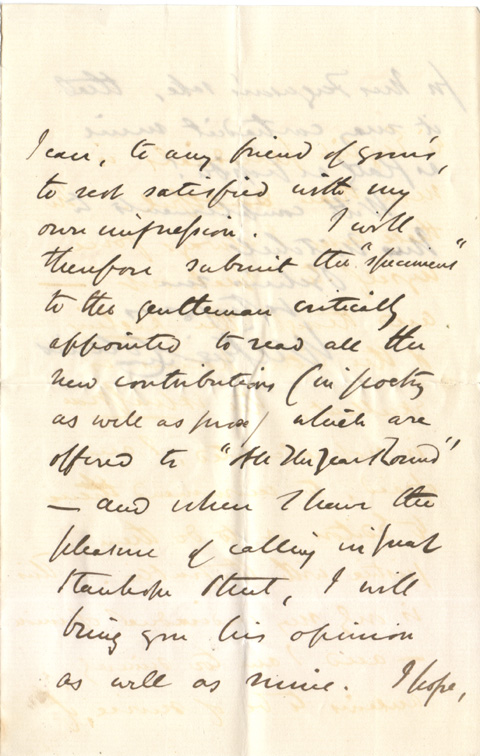 I can, to any friend of yours,
to rest satisfied with my
own impression. I will
therefore submit the "specimens"
to the gentleman critically
appointed to read all the
new contributions (in poetry
as well as prose) which are
offered to "All The Year Round"
— and when I have the
pleasure of calling in Great
Stanhope Street, I will
bring you his opinion
as well as mine. I hope,